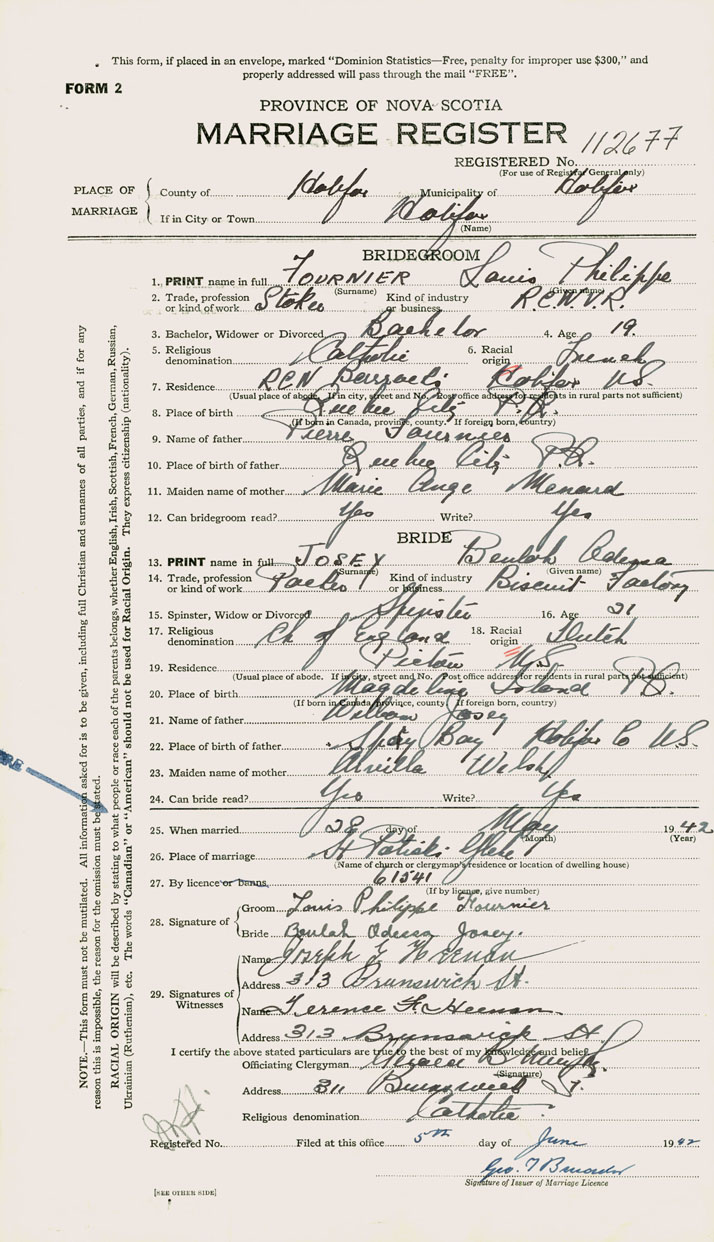 This form, if placed in an envelope, marked "Dominion Statistics—Free, penalty for improper use $300," and
properly addressed will pass through the mail "FREE".
FORM 2
PROVINCE OF NOVA SCOTIA
MARRIAGE REGISTER
REGISTERED No. 112677
(For use of Registrar General only)
PLACE OF MARRIAGE
County of Halifax Municipality of Halifax
If in City or Town Halifax
(Name)
BRIDEGROOM
1. PRINT name in full FOURNIER Louis Philippe
(Surname) (Given name)
2. Trade, profession or kind of work Stoker Kind of industry or business R.C.N.V.R.
3. Bachelor, Widower or Divorced Bachelor 4. Age 19.
5. Religious denomination Catholic 6. Racial origin French
7. Residence RCN Barracks Halifax N.S.
(Usual place of abode. If in city, street and No. Post office address for residents in rural parts not sufficient)
8. Place of birth Quebec City P.Q.
(If born in Canada, province, county. If foreign born, country)
9. Name of father Pierre Fournier
10. Place of birth of father Quebec City P.Q.
11. Maiden name of mother Marie Ange Menard
12. Can bridegroom read? Yes Write? Yes
BRIDE
13. PRINT name in full JOSEY Beulah Odessa
(Surname) (Given name)
14. Trade, profession or kind of work Packer Kind of industry or business Biscuit Factory
15. Spinster, Widow or Divorced Spinster 16. Age 21
17. Religious denomination Ch of England 18. Racial origin Dutch
19. Residence Pictou N.S.
(Usual place of abode. If in city, street and No. Post office address for residents in rural parts not sufficient)
20. Place of birth Magdeline Island P.Q.
(If born in Canada, province, county. If foreign born, country)
21. Name of father William Josey
22. Place of birth of father Spry Bay Halifax Co N.S.
23. Maiden name of mother Arvilla Welsh
24. Can bride read? Yes Write? Yes
25. When married 28 day of May 1942
(Month) (Year)
26. Place of marriage St Patricks Glebe
(Name of church or clergyman's residence or location of dwelling house)
27. By licence or banns 61541
(If by licence, give number)
28. Signature of
Groom Louis Philippe Fournier
Bride Beulah Odessa Josey.
29. Signatures of Witnesses
Name Joseph E Heenan
Address 313 Brunswick St.
Name Terence F. Heenan
Address 313 Brunswick St
I certify the above stated particulars are true to the best of my knowledge and belief.
Officiating Clergyman
(Signature)
Address 311 Brunswick St.
Religious denomination Catholic
Registered No. Filed at this office 5th day of June 1942
Signature of Issuer of Marriage Licence
[SEE OTHER SIDE]
NOTE.—This form must not be mutilated. All information asked for is to be given, including full Christian and surnames of all parties, and if for any
reason this is impossible, the reason for the omission must be stated.
RACIAL ORIGIN will be described by stating to what people or race each of the parents belongs, whether English, Irish, Scottish, French, German, Russian,
Ukrainian (Ruthenian), etc. The words "Canadian" or "American" should not be used for Racial Origin. They express citizenship (nationality).